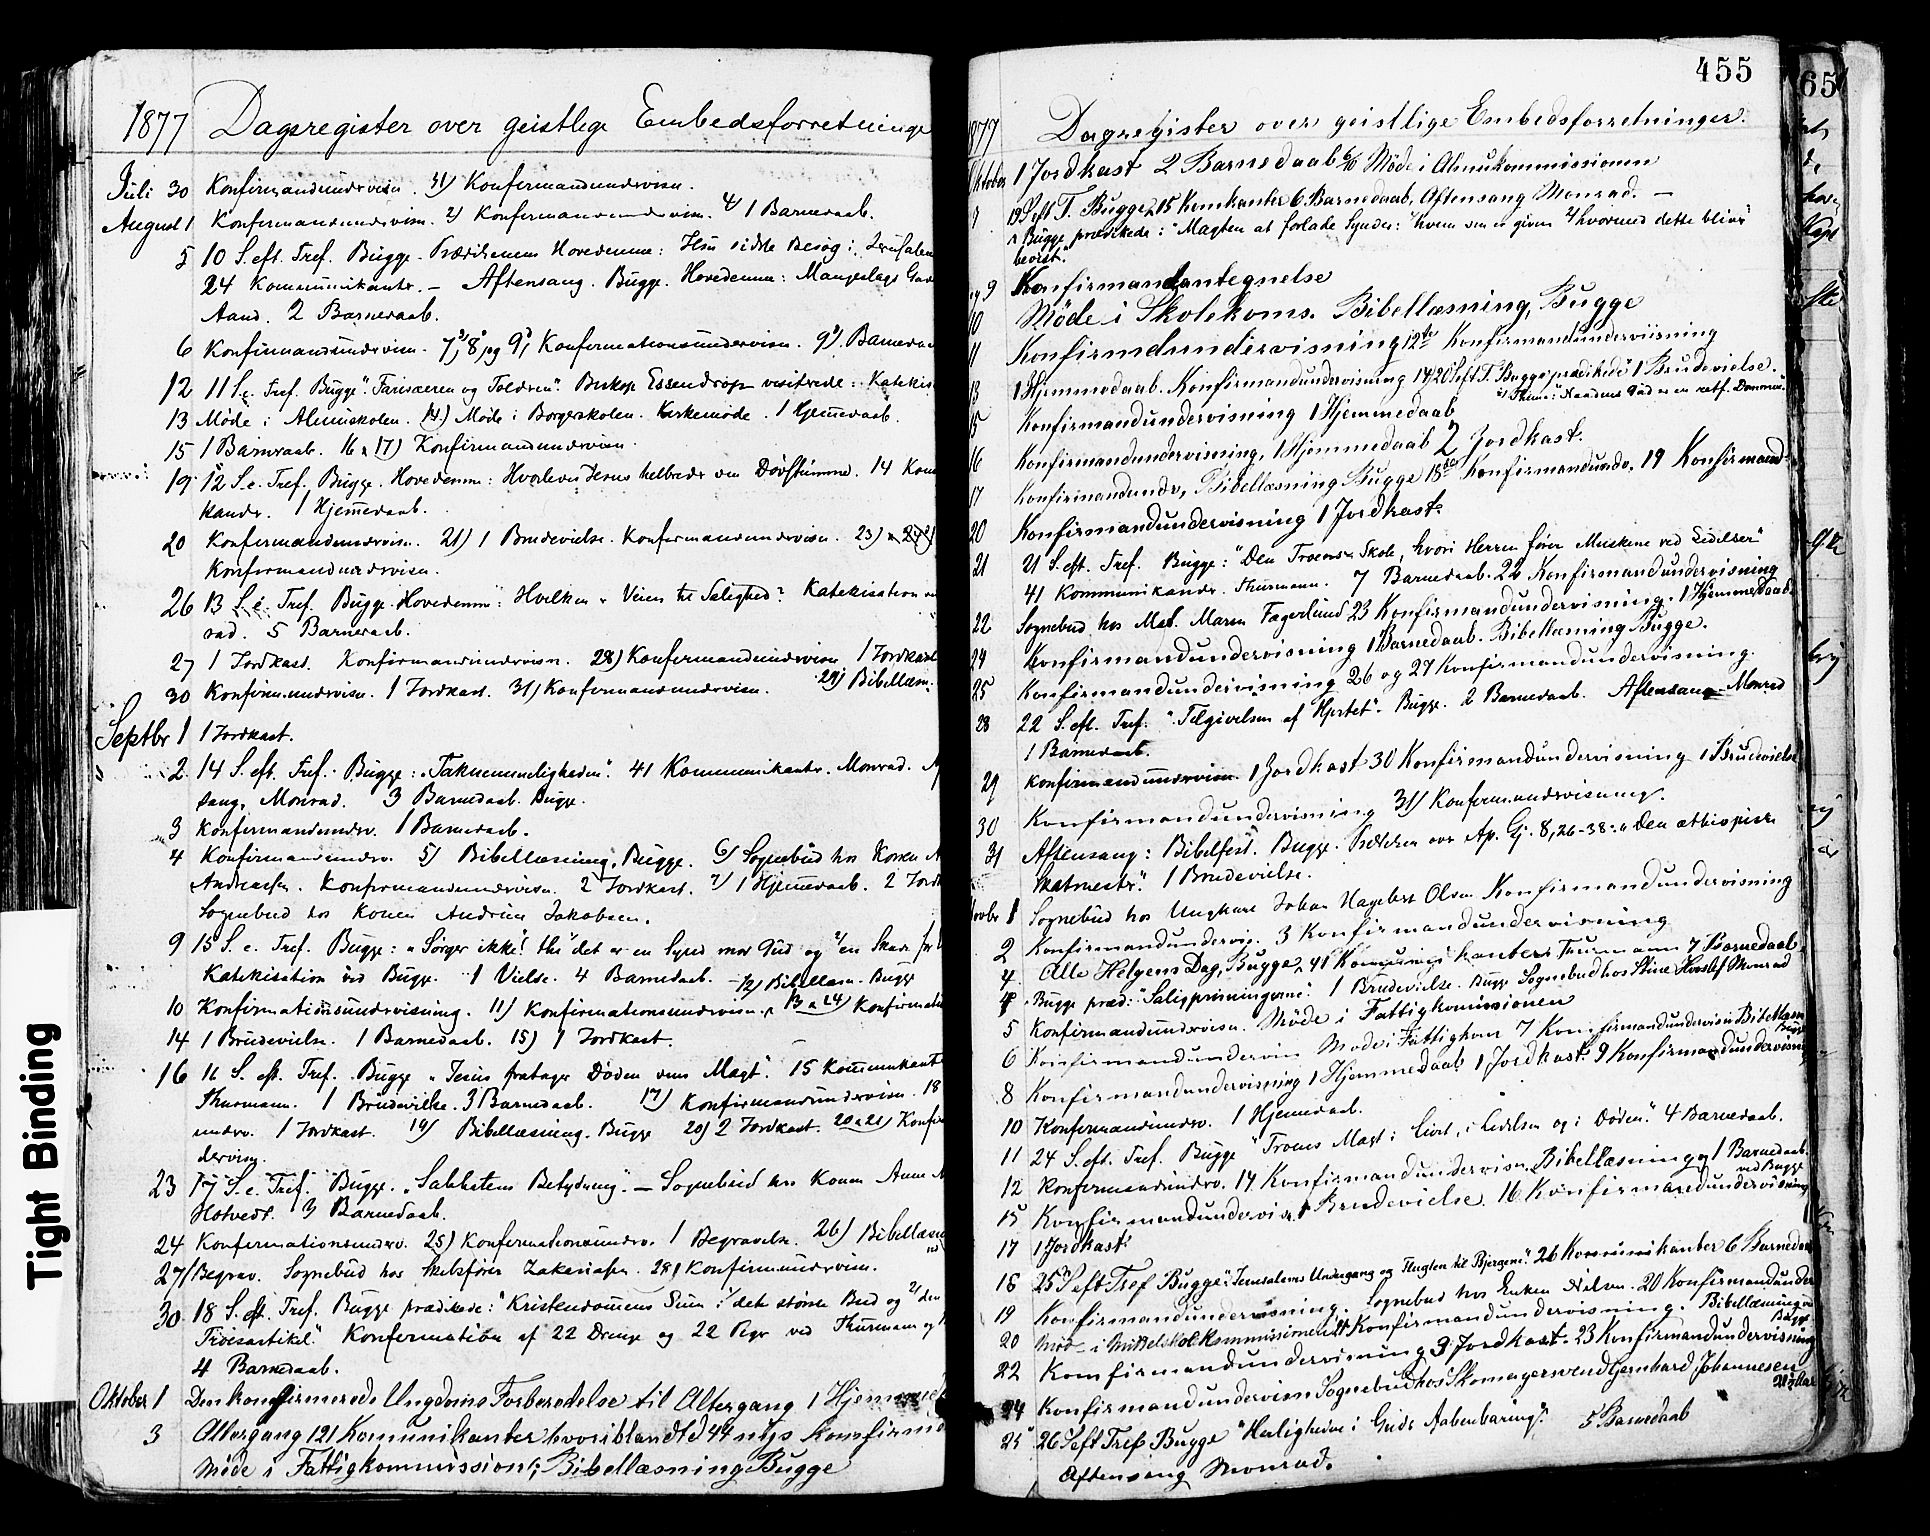 1877 Dagsregister over geistlige Embedsforretninge
Juli 30 Konfirmandundervisn. 31) Konfirmandundervisn.
August 1 Konfirmandundervisn. 2) Konfirmandundervisn. 4) 1 Barnedaab.
5 10 S. eft. Tref. Bugge. Prædikenens Hovedemne: Jesu sidste Besøg i Jerusalem
24 Kommunikanter. – Aftensang. Bugge. Hovedemne: Mangeslags Gaver
Aand. 2 Barnedaab.
6 Konfirmandundervisn. 7), 8) og 9) Konfirmationsundervisn. 9) Barnedaa
12 11 S. e. Tref. Bugge "Farisæeren og Tolderen". Biskop Essendrop visiterede: Katekis
13 Møde i Almuskolen. 14) Møde i Borgerskolen. Kirkemøde. 1 Hjemmedaab.
15 1 Barnedaab. 16 & 17) Konfirmandundervisn.
19 12 S. e. Tref. Bugge. Hovedemne: Hvorledes Jesus helbreder den Døvstumme. 14 Kom
kander. 1 Hjemmedaab.
20 Konfirmandundervisn. 21) 1 Brudevielse. Konfirmandundervisn. 23) & 24)
Konfirmandundervisn.
26 13 S. e. Tref. Bugge. Hovedemne: Hvilken er Veien til Salighed? Katekisation
rad. 5 Barnedaab.
27 1 Jordkast. Konfirmandundervisn. 28) Konfirmandundervisn. 1 Jordkast
29) Bibellæsn.
30 Konfirm.undervisn. 1 Jordkast. 31) Konfirmandundervisn.
Septbr 1 1 Jordkast.
2 14 S. eft. Tref. Bugge: "Taknemmeligheden". 41 Kommunikanter. Monrad. A
sang, Monrad. 3 Barnedaab. Bugge.
3 Konfirmandundv. 1 Barnedaab.
4 Konfirmandundv. 5) Bibellæsning, Bugge. 6) Sognebud hos Konen A
Andreasen. Konfirmandundervisn. 2 Jordkast. 7) 1 Hjemmedaab. 2 Jordk
Sognebud hos Konen Andrine Jakobsen.
9 15 S. e. Tref. Bugge: "Sørger ikke! thi 1) det er en Synd mod Gud og 2) en Skade for
Katekisation ved Bugge. 1 Vielse. 4 Barnedaab. 12) Bibellæsn. Bugge
10 Konfirmationsundervisning. 11) Konfirmationsundervisn. 13 & 14) Konfirmati
14 1 Brudevielse. 1 Barnedaab. 15) 1 Jordkast.
16 16 S. eft. Tref. Bugge "Jesus fratager Døden dens Magt". 15 Kommunikant
Thurmann. 1 Brudevielse. 3 Barnedaab. 17) Konfirmandundervisn. 18
undv. 1 Jordkast. 19) Bibellæsning. Bugge 20) 2 Jordkast. 20 & 21) Konfir
dervisn.
23 17 S. e. Tref. Bugge. "Sabbatens Betydning". – Sognebud hos Konen Anne
Hotvedt. 3 Barnedaab.
24 Konfirmationsundv. 25) Konfirmationsundv. 1 Begravelse. 26) Bibellæsn
27) Begrav. Sognebud hos Skibsfører Zakariasen. 28) Konfirm.undervisn.
30 18 S. eft. Tref. Bugge prædikede: "Kristendommens Sum: 1) det største Bud og 2) den
Troesartikel". Konfirmation af 22 Drenge og 22 Piger ved Thurmann og
4 Barnedaab.
Oktober 1 Den konfirmerede Ungdoms Forberedelse til Altergang 1 Hjemmed
3 Altergang 121 Komunikanter hvoriblandt d 44 nys konfirme
Møde i Fattigkommissionen; Bibellæsning Bugge
455
1877 Dagregister over geistlige Embedsforretninger.
Oktober 1 Jordkast 2 Barnedaab 6/10 Møde i Almukommissionen
7 19 S eft T. Bugge, 15 Komkanter 6 Barnedaab, Aftensang Monrad. –
Bugge prædikede: "Magten at forlade Synder: 1) hvem den er given 2) hvormed dette bliver
bevist.
og 9 Konfirmandantegnelse
10 Møde i Skolekoms. Bibellæsning, Bugge
11 Konfirmdundervisning 12te Konfirmandunderviisning
13 1 Hjemmedaab. Konfirmandundervisning 14) 20 S eft T. Bugge prædikede 1) 1 Brudevielse.
1) Thema: Naadens Gud er en retf. Dommer.
15 Konfirmandundervisning 1 Hjemmedaab
16 Konfirmandundervisning, 1 Hjemmedaab 2 Jordkast.
17 Konfirmandundv, Bibellæsning Bugge 18de Konfirmandundv, 19 Konfirmand-
20 Konfirmandundervisning 1 Jordkast.
21 21 S. eft. Tref. Bugge: "Den Troens Skole, hvori Herren fører Miskene ved Lidelser"
41 Kommunikander. Thurmann. 7 Barnedaab. 22 Konfirmandundervisning
22 Sognebud hos Mad. Maren Fagerlund 23 Konfirmandundervisning. 1 Hjemmedaab.
24 Konfirmandundervisning 1 Barnedaab. Bibellæsning Bugge.
25 Konfirmandundervisning 26 og 27 Konfirmandundervisning.
28 22 S. eft. Tref. "Tilgivelsen af Hjertet". Bugge. 2 Barnedaab. Aftensang – Monrad
1 Barnedaab.
29 Konfirmandundervisn. 1 Jordkast 30 Konfirmandundervisning 1 Brudevielse
30 Konfirmandundervisning 31) Konfirm.undervisning.
31 Aftensang: Bibelfest. Bugge. Prædiken over Ap. Gj. 8, 26-38: "Den æthiopiske
Skatmester". 1 Brudevielse.
Novbr 1 Sognebud hos Ungkarl Johan Hagebert Olsen Konfirmandundervisning
2 Konfirmandundervis. 3 Konfirmandundervisning
4 Alle Helgens Dag, Bugge, 41 Komunikanter Thurmann 7 Barnedaab
4 Bugge præd: "Saligprisningerne". 1 Brudevielse. Bugge Sognebud hos Stine Monrad
5 Konfirmandundervisn. Møde i Fattigkommissionen
6 Konfirmandundervisn Møde i Fattigkom 7 Konfirmandundervisn Bibellæsn
Bugge
8 Konfirmandundervisning 1 Hjemmedaab 1 Jordkast 9 Konfirmandundervisni
10 Konfirmandundv. 1 Hjemmedaab.
11 24 S. eft. Tref. Bugge "Troens Magt i Livet, i Lidelsen og i Døden". 4 Barnedaab.
12 Konfirmandundv. 14 Konfirmandundervisn. Bibellæsning 1 Barnedaab.
ved Bugge
15 Konfirmandundervisn. 1 Brudevielse. 16 Konfirmandundervisning
17 1 Jordkast
18 25 S eft Tref Bugge "Jerusalems Undergang og Flugten til Bjergene". 26 Komunikanter 6 Barnedaa
19 Konfirmandundervisning. Sognebud hos Enken Nilsen. 20 Konfirmandunder
20 Møde i Middelskolekommissionen 21 Konfirmandundervisning. Bibellæsning
Bugge
22 Konfirmandundervisning 3 Jordkast. 23 Konfirmandundervisning
24 Konfirmandundervisn Sognebud hos Skomagersvend Gernhard Johannesen
25 26 S eft Tref Bugge "Herligheden i Guds Aabenbaring". 5 Barnedaab
Aftensang Monrad.
65
Tight Binding